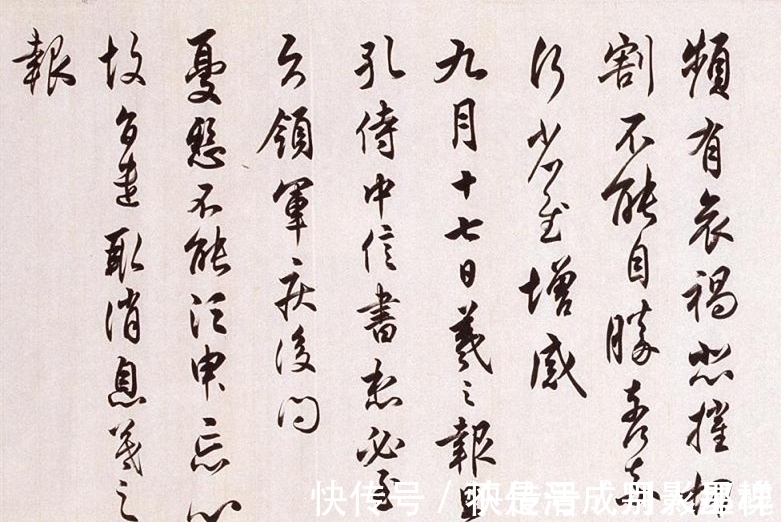 頻有哀禍悲摧切
割不能自勝奈何奈
何省慰增感
九月十七日羲之報且
孔侍中信書想必至
領軍疾後問
憂懸不能須臾忘心
故旨遣取消息羲之
報
快传号 /